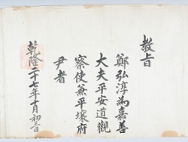 敎旨
鄭弘淳為嘉善
大夫平安道觀
察使兼平壤府
尹者
乾隆二十七年十月初